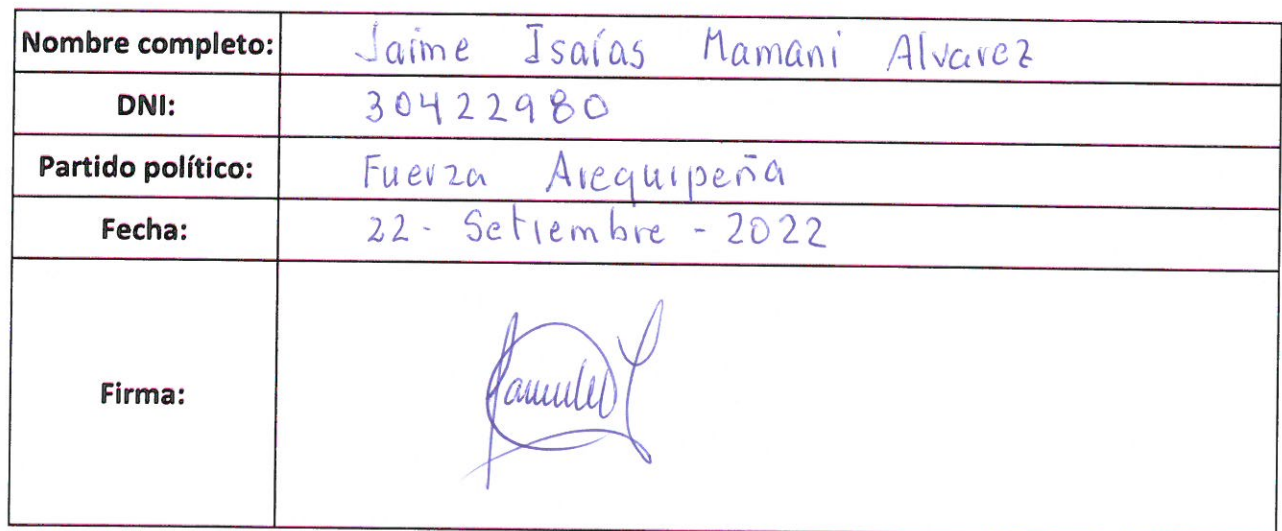 Nombre completo: Jaime Isaías Mamani Alvarez
DNI: 30422980
Partido político: Fuerza Arequipeña
Fecha: 22- Setiembre - 2022
Firma: